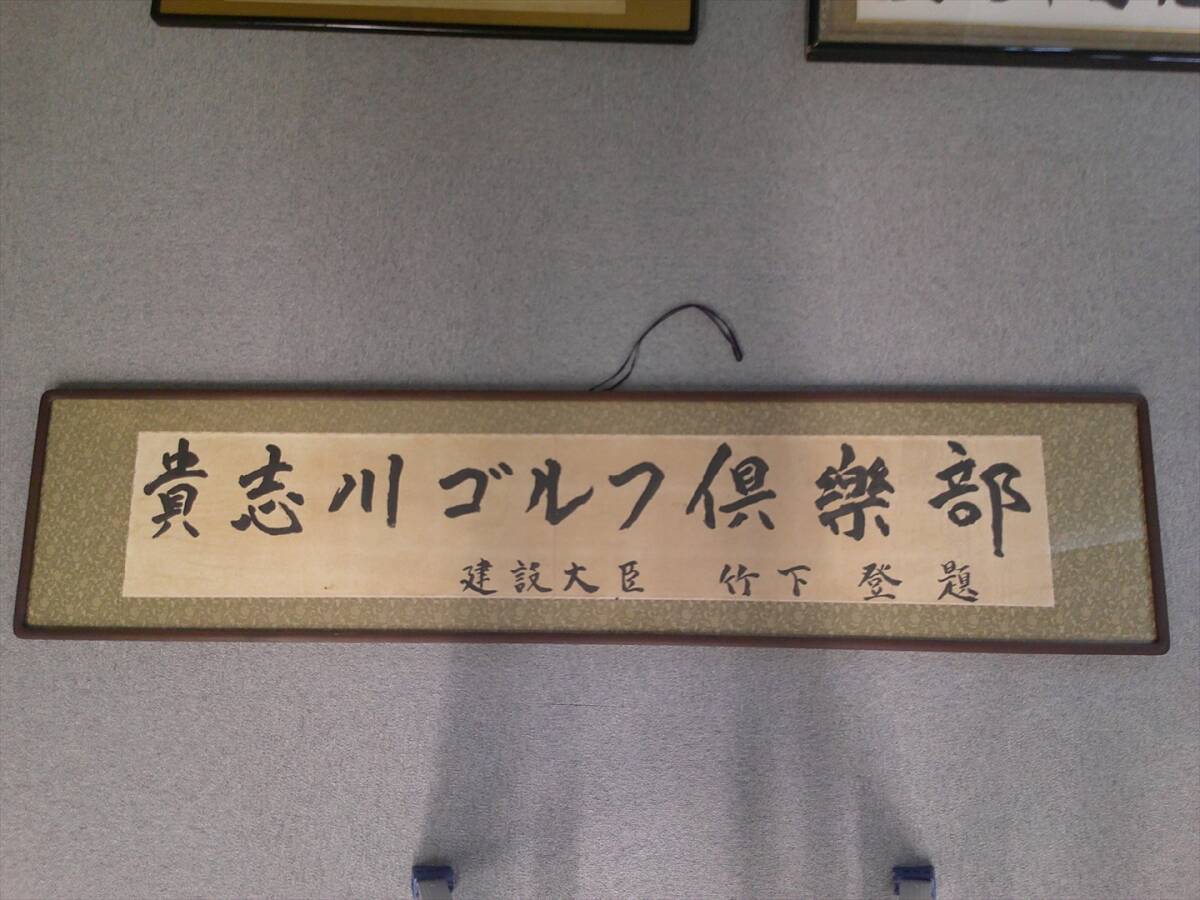 貴志川ゴルフ倶樂部
建設大臣 竹下 登 題